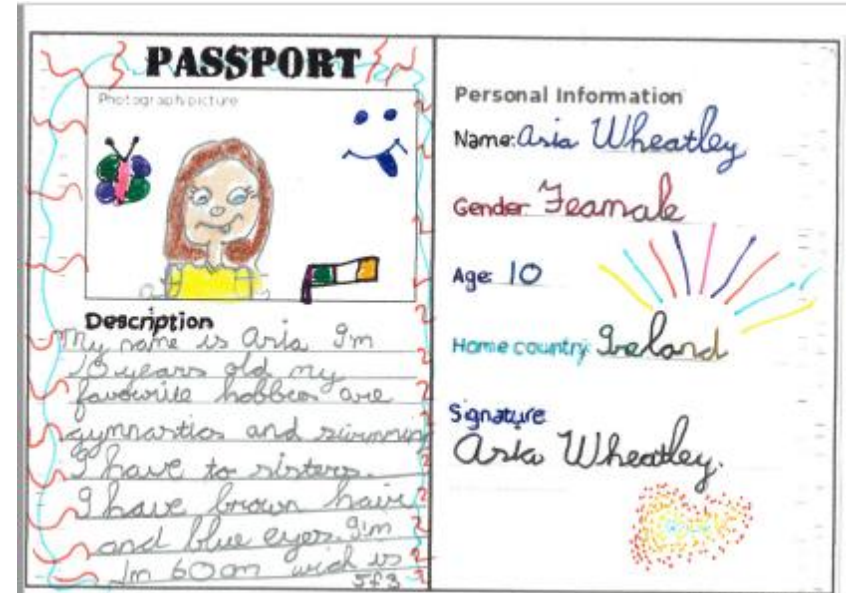 PASSPORT
Photograph picture
Description
My name is Aria I'm
10 years old my
favourite hobbies are
gymnastics and swimming
I have to sisters.
I have brown hair
and blue eyes. I'm
1m 60cm wich is
5f3
Personal Information
Name: Aria Wheatley
Gender Feamale
Age: 10
Home country: Ireland
Signature
Aria Wheatley.